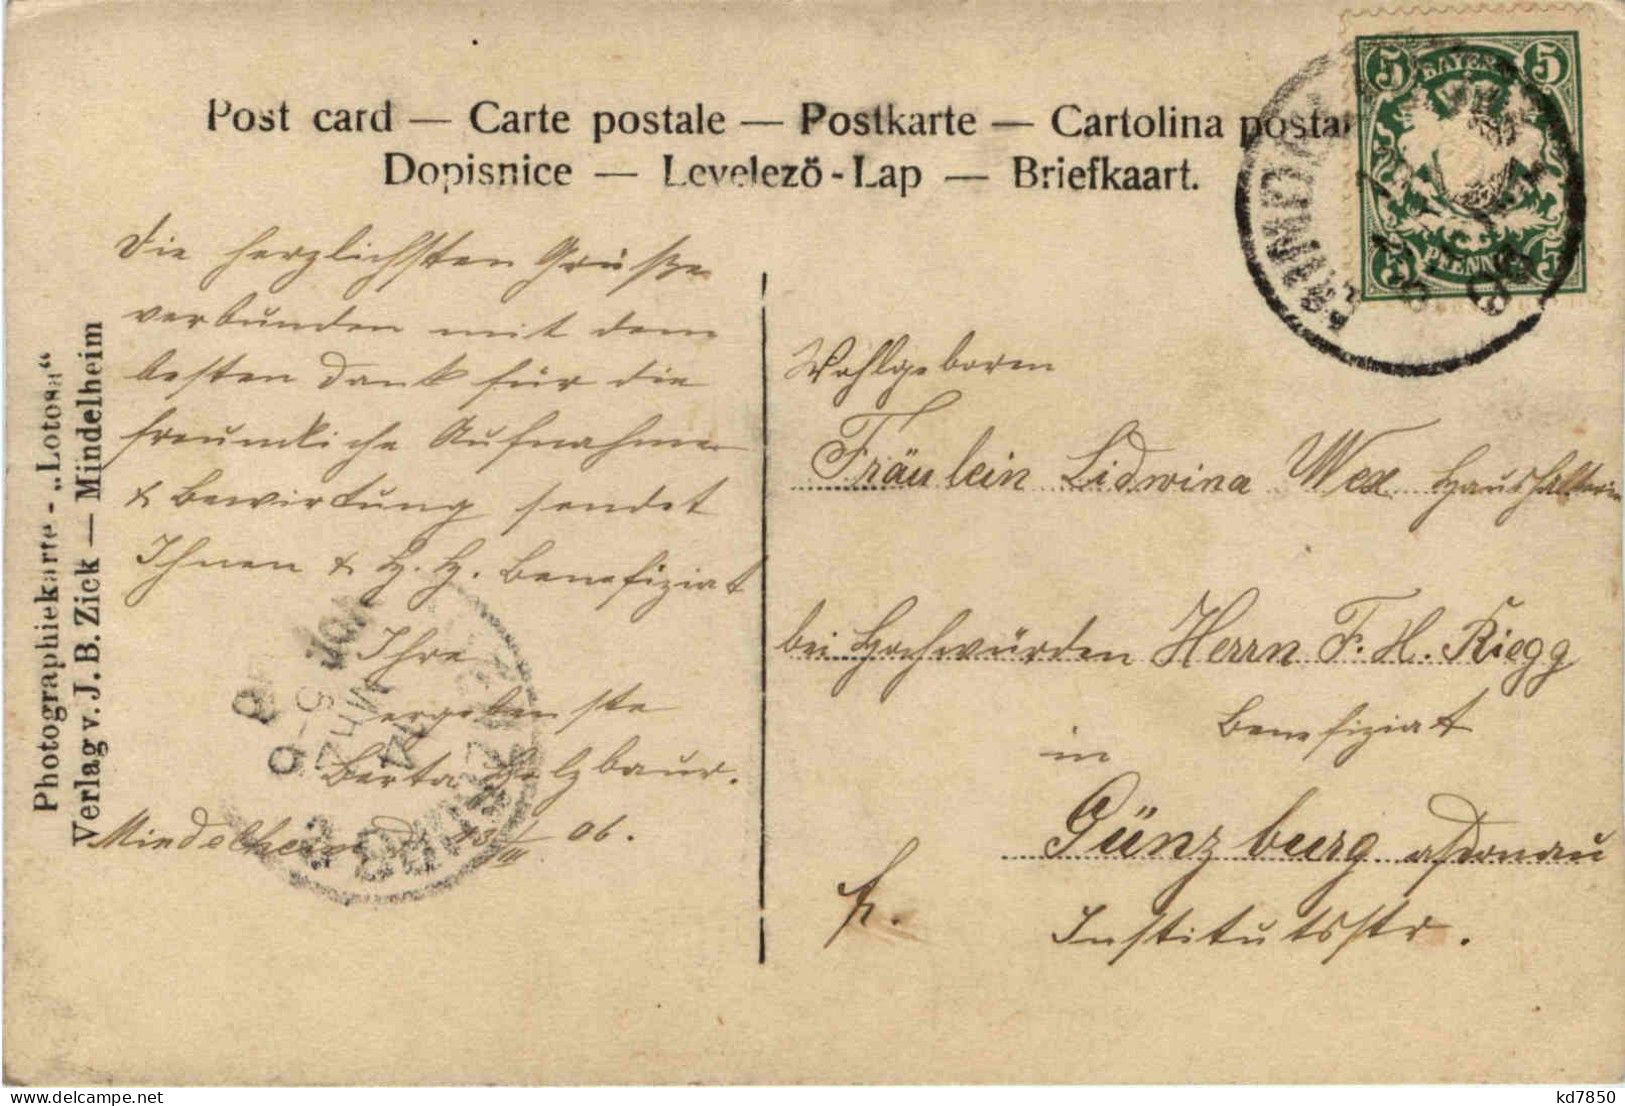 Post card — Carte postale — Postkarte — Cartolina postal
Dopisnice — Levelezö-Lap — Briefkaart.
5 BAYERN 5
5 PFENNIG 5
06
Photographiekarte - „Lotosa“
Verlag v. J. B. Zick — Mindelheim
Die herzlichsten Grüße
verbunden mit dem
besten Dank für die
freundliche Aufnahme
& Bewirtung sendet
Ihnen & H. H. Benefiziat
Ihre
ergebenste
Berta Holzbaur.
Mindelheim d. 13/III 06.
Wohlgeboren
Fräulein Lidwina Wex Haushälterin
bei Hochwürden Herrn F. H. Riegg
Benefiziat
in
Günzburg a/Donau
fr.
Institutsstr.
kd7850